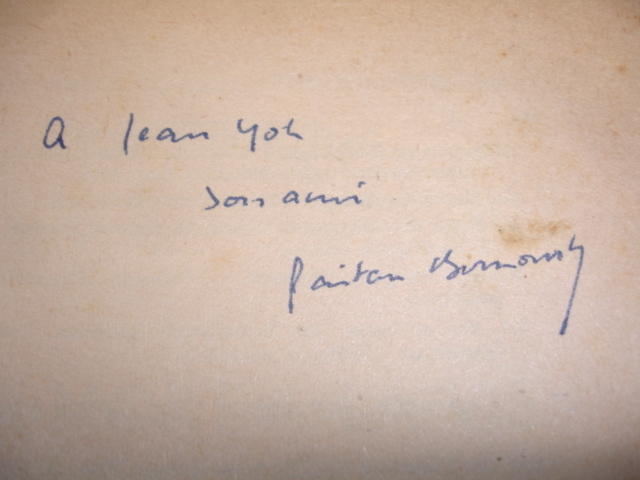 A Jean Yole
son ami
Gaëtan Bernoville